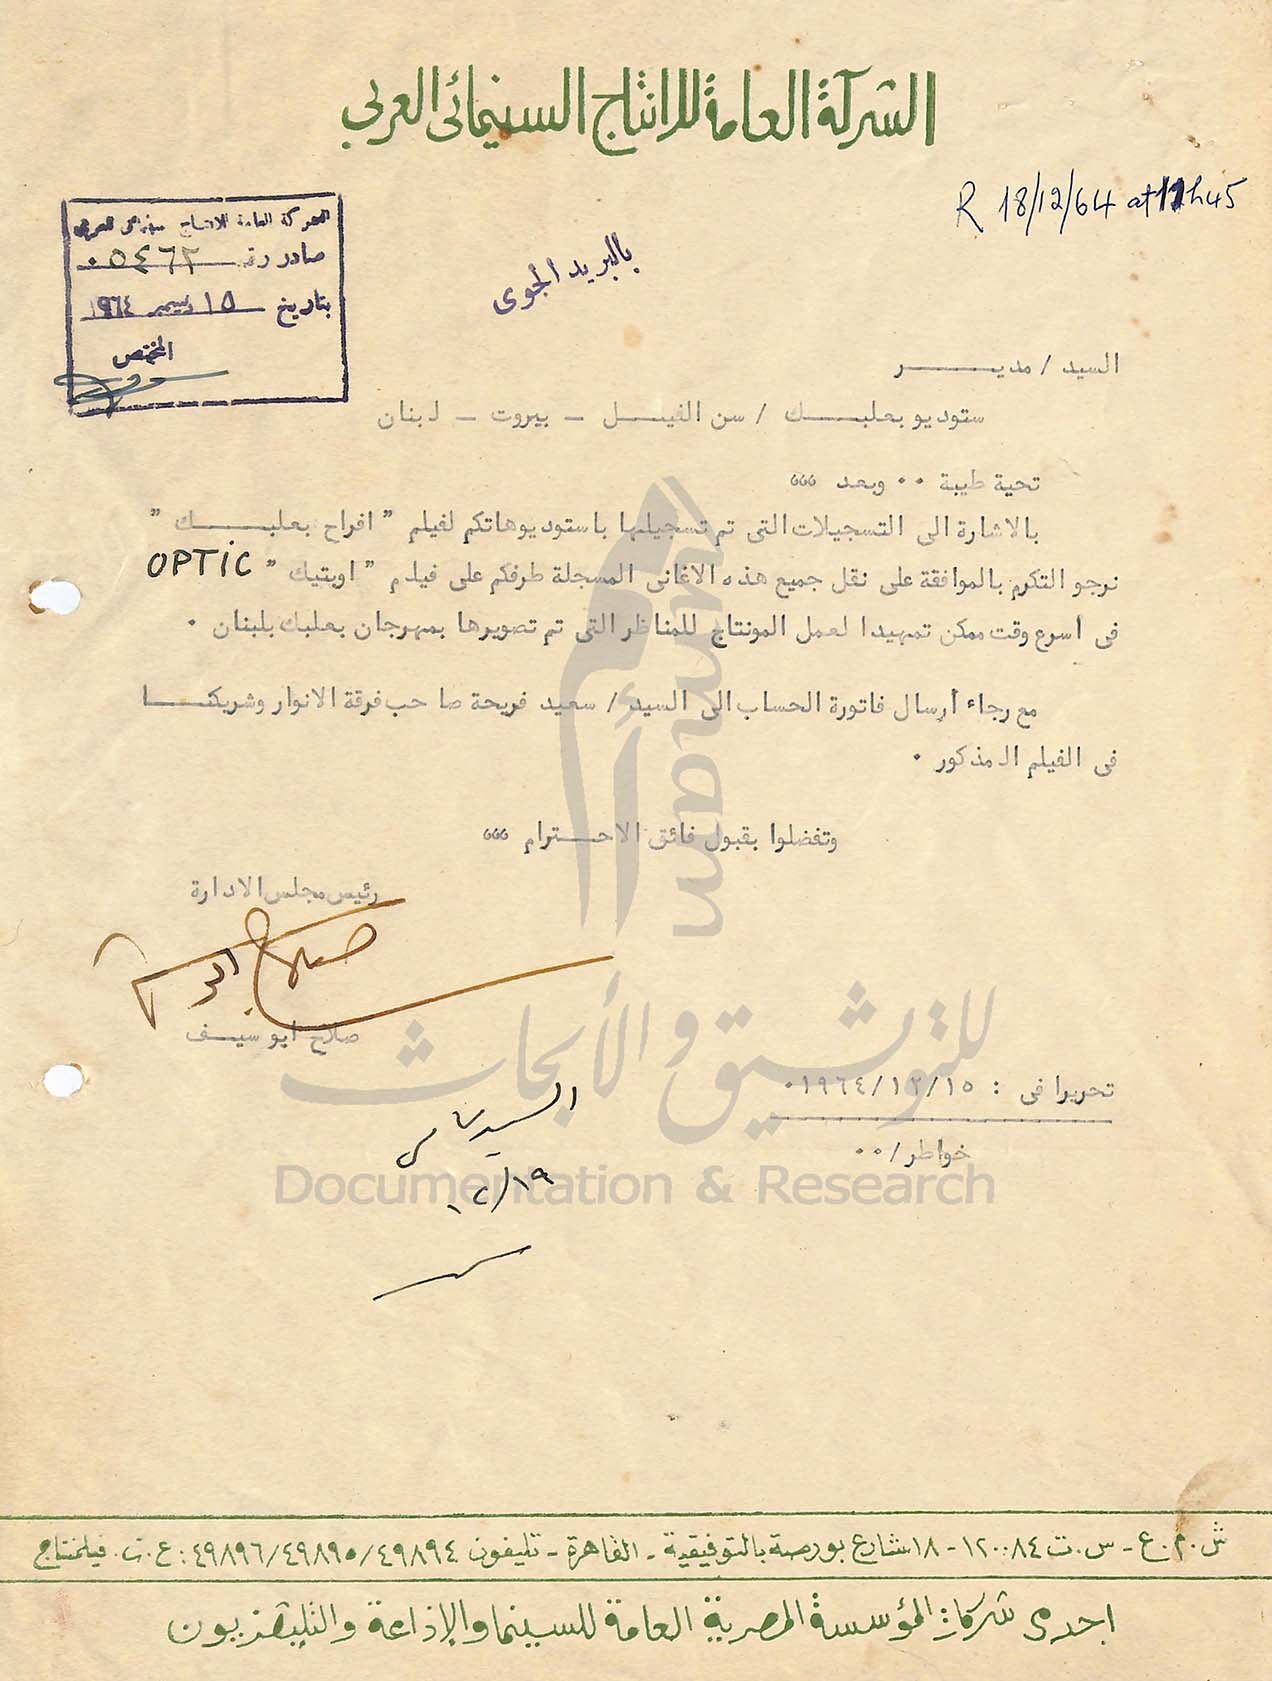 الشركة العامة للانتاج السينمائى العربى
R 18/12/64 at 11h45
الشركة العامة للانتاج سينمائى العربى
صادر رقم ٠٥٤٦٢
بتاريخ ١٥ ديسمبر ١٩٦٤
المختص
بالبريد الجوى
السيد / مديـــــر
ستوديو بعلبــــك / سن الفيــــل ـ بيروت ـ لبنان
تحية طيبة ٠٠ وبعد ،،،
بالاشارة الى التسجيلات التى تم تسجيلها باستوديوهاتكم لفيلم " افراح بعلبــــك "
نرجو التكرم بالموافقة على نقل جميع هذه الاغانى المسجلة طرفكم على فيلم " اوبتيك " OPTIC
فى أسرع وقت ممكن تمهيدا لعمل المونتاج للمناظر التى تم تصويرها بمهرجان بعلبك بلبنان ٠
مع رجاء أرسال فاتورة الحساب الى السيد / سعيد فريحة صاحب فرقة الانوار وشريكنــــا
فى الفيلم المذكور ٠
وتفضلوا بقبول فائق الاحــــترام ،،،
رئيس مجلس الادارة
صلاح ابو سيــف
تحريرا فى : ١٩٦٤/١٢/١٥٠
خواطر /٠٠
السيد سامي
١٢/١٩
umam
أمم
للتوثيق و الأبحاث
Documentation & Research
ش.م.ع - س.ت ١٢٠٠٨٤ - ١٨ شارع بورصة بالتوفيقية - القاهرة - تليفون ٤٩٨٩٤/٤٩٨٩٥/٤٩٨٩٦ : ع.ت. فيلمنتاج
احدى شركات المؤسسة المصرية العامة للسينما والإذاعة والتليفزيون